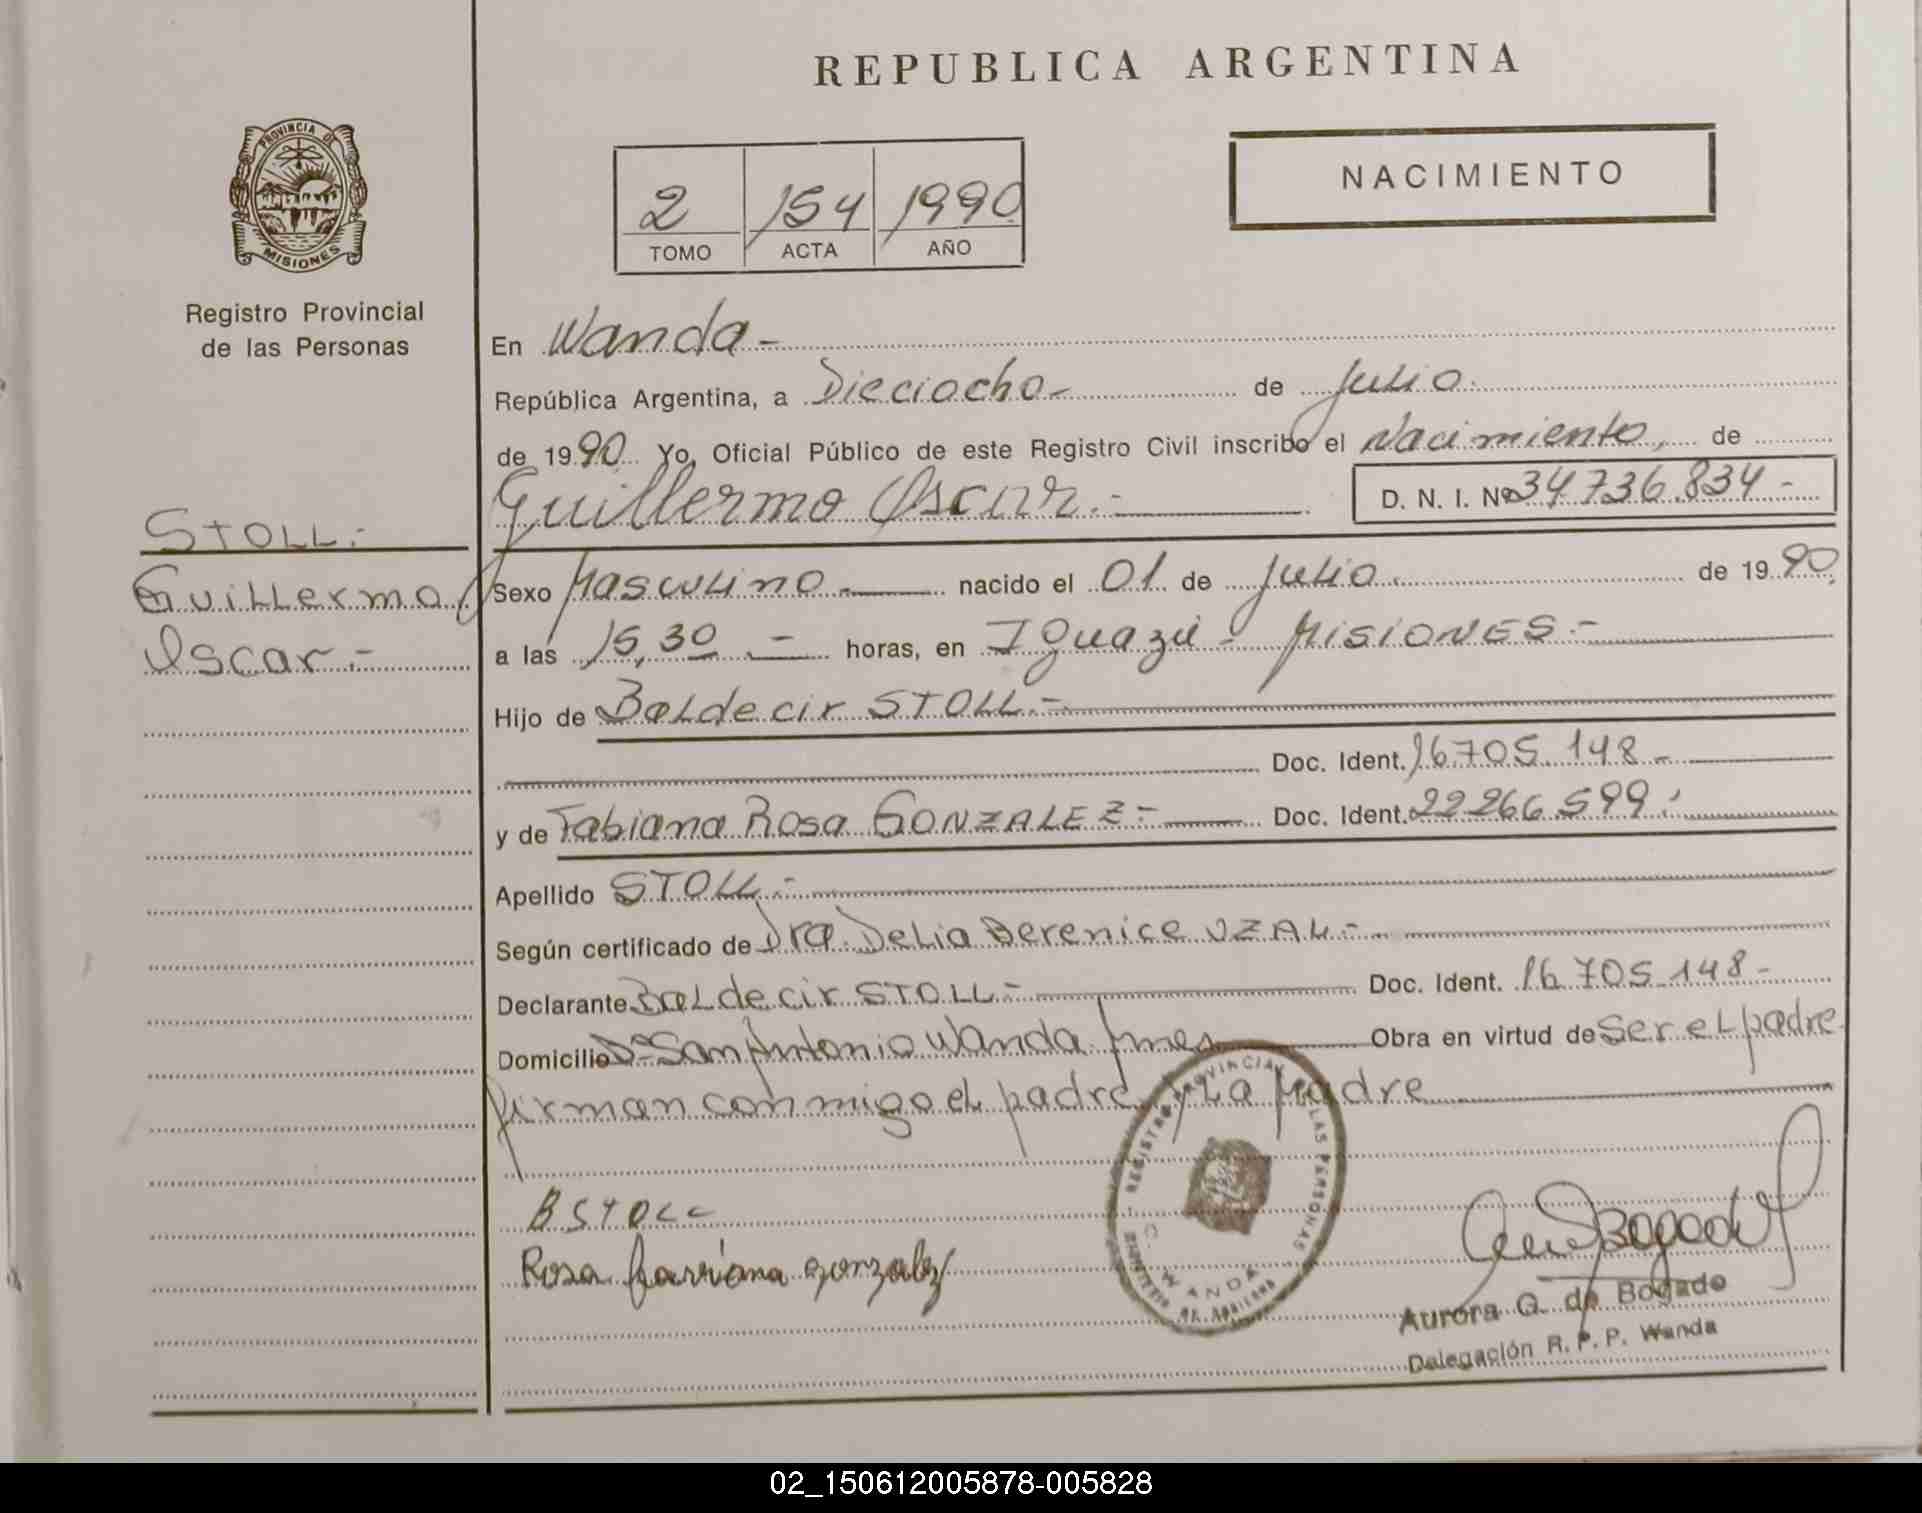 REPUBLICA ARGENTINA
PROVINCIA DE
MISIONES
Registro Provincial
de las Personas
2 154 1990
TOMO ACTA AÑO
NACIMIENTO
En Wanda-
República Argentina, a Dieciocho- de Julio.
de 1990 Yo, Oficial Público de este Registro Civil inscribo el Nacimiento, de
Guillermo Oscar.- D. N. I. Nº 34.736.834-
STOLL.-
Guillermo
Oscar.-
Sexo Masculino nacido el 01 de Julio de 1990
a las 15,30 - horas, en Iguazú - MISIONES.-
Hijo de Baldecir STOLL.-
Doc. Ident. 16.705.148-
y de Fabiana Rosa GONZALEZ.- Doc. Ident. 22266.599.
Apellido STOLL.-
Según certificado de Dra. Delia Berenice UZAL.-
Declarante Baldecir STOLL.- Doc. Ident. 16.705.148-
Domicilio Dº San Antonio Wanda Mnes Obra en virtud de Ser el padre
firman conmigo el padre y La Madre
REGISTRO PROVINCIAL DE LAS PERSONAS
WANDA
B STOLL
Rosa Faviana gonzalez
Aurora Q. de Bogado
Delegación R. P. P. Wanda
02_150612005878-005828